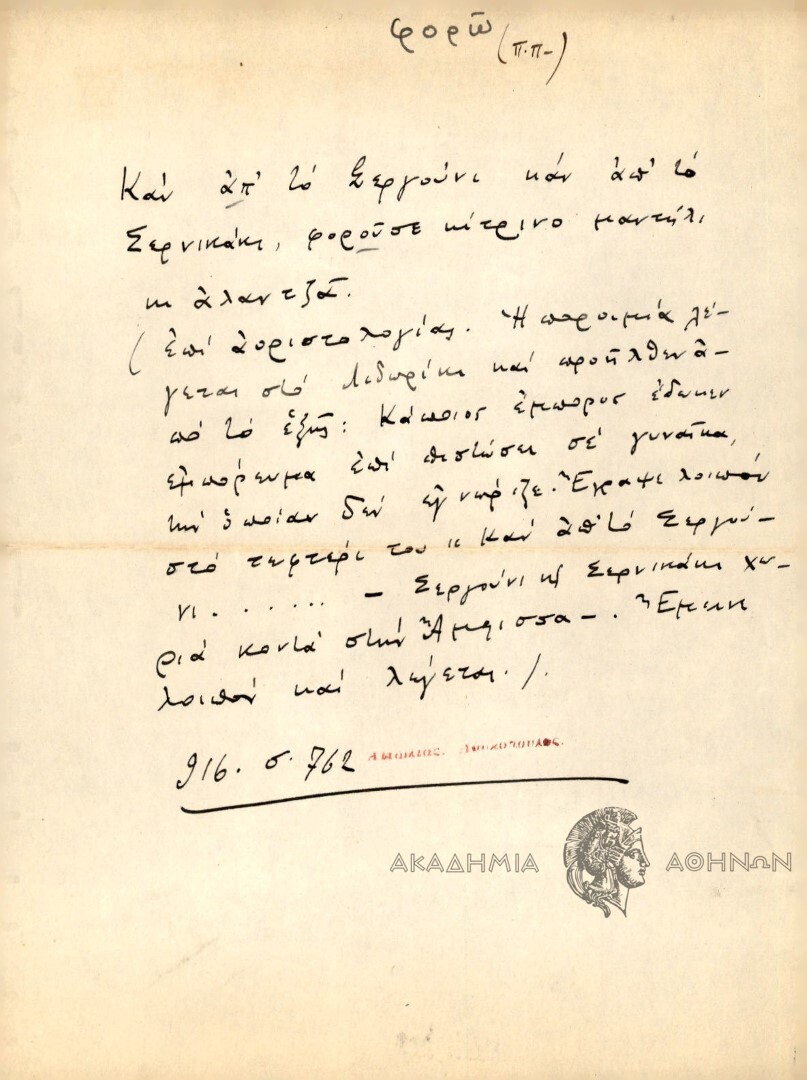 φορῶ (π.π-)
Κάν ἀπ' τό Σεργούνι κάν ἀπ' τό
Σερνικάκι, φοροῦσε κίτρινο μαντήλι
κι ἀλαντζᾶ.
(ἐπί ἀοριστολογίας. Ἡ παροιμία λέ-
γεται στό Λιδωρίκι καί προῆλθεν ἀ-
πό τό ἑξῆς: Κάποιος ἔμπορος ἔδωκεν
ἐμπόρευμα ἐπί πιστώσει σέ γυναῖκα,
τήν ὁποίαν δέν ἐγνώριζε. Ἔγραψε λοιπόν
στό τεφτέρι του " Κάν ἀπ' τό Σεργού-
νι . . . . . . . - Σεργούνι κ Σερνικάκι χω-
ριά κοντά στήν Ἄμφισσα - . Ἔμεινε
λοιπόν καί λέγεται. ).
916. σ. 762 Λουκόπουλος.
ΑΚΑΔΗΜΙΑ ΑΘΗΝΩΝ